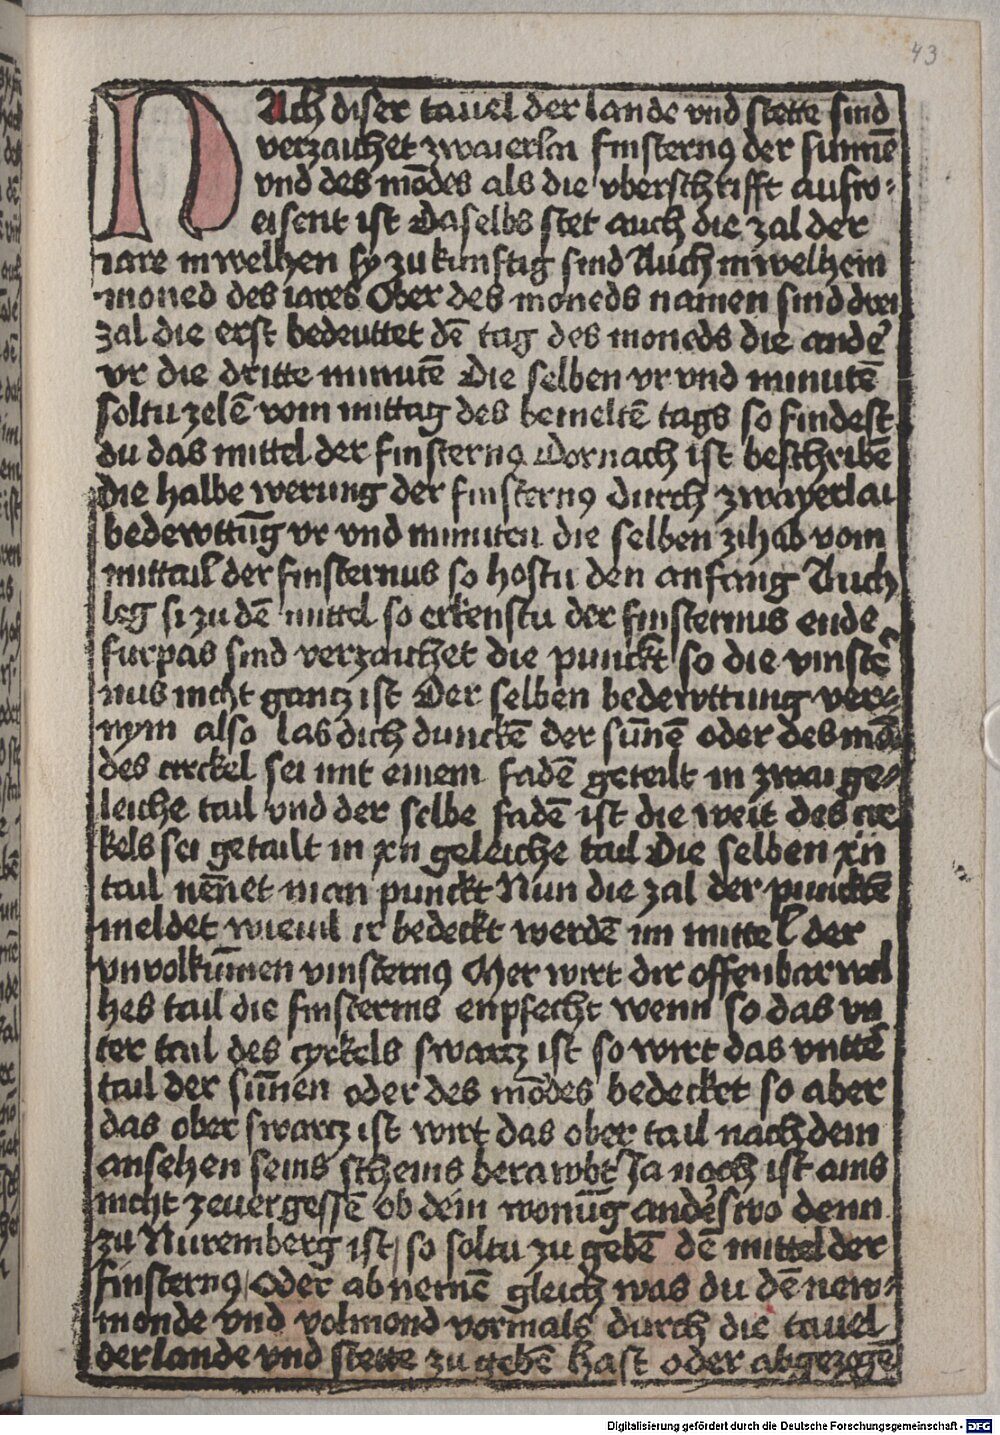 43
NAch diser tauel der lande vnd stette sind
verzaichet zwaierlai finsternus der sunnē
vnd des mōdes als die vberschrifft aufw-
eisent ist Daselbs stet auch die zal der
iare in welhen sy zu kunftig sind Auch in welhem
moned des iares Ober des moneds namen sind drei
zal die erst bedeuttet dē tag des moneds die ander
vr die dritte minutē Die selben vr vnd minutē
soltu zelē vom mittag des bemeltē tags so findest
du das mittel der finsternus Dornach ist beschribē
die halbe werung der finsternus durch zwayerlai
bedewttūg vr vnd minuten die selben zihab vom
mittail der finsternus so hostu den anfang Auch
leg si zu dē mittel so erkenstu der finsternus ende
furpas sind verzaichet die punckt so die vinster
nus nicht gantz ist Der selben bedewttung ver-
nym also las dich dunckē der sūnē oder des mō
des circkel sei mit einem fadē geteilt in zwai ge-
leiche tail vnd der selbe fadē ist die weit des cir
kels sei getailt in xii geleiche tail Die selben xii
tail nēnet man punckt Nun die zal der punckte
meldet wieuil ir bedeckt werdē im mittel der
vnvolkūmen vinsternus Mer wirt dir offenbar wel
hes tail die finsternis enpfecht wenn so das vn
ter tail des cyrkels swartz ist so wirt das vntter
tail der sūnnen oder des mōdes bedecket so aber
das ober swartz ist wirt das ober tail nach dem
ansehen seins scheins berawbt Ja noch ist ains
nicht zeuergessē ob dein wonūg anderswo denn
zu Nuremberg ist / so soltu zu gebē dē mittel der
finsternus / Oder ab nemē gleich was du dē new-
monde vnd volmond vormals durch die tauel
der lande vnd stette zu gebē hast oder abgezogē
Digitalisierung gefördert durch die Deutsche Forschungsgemeinschaft - DFG